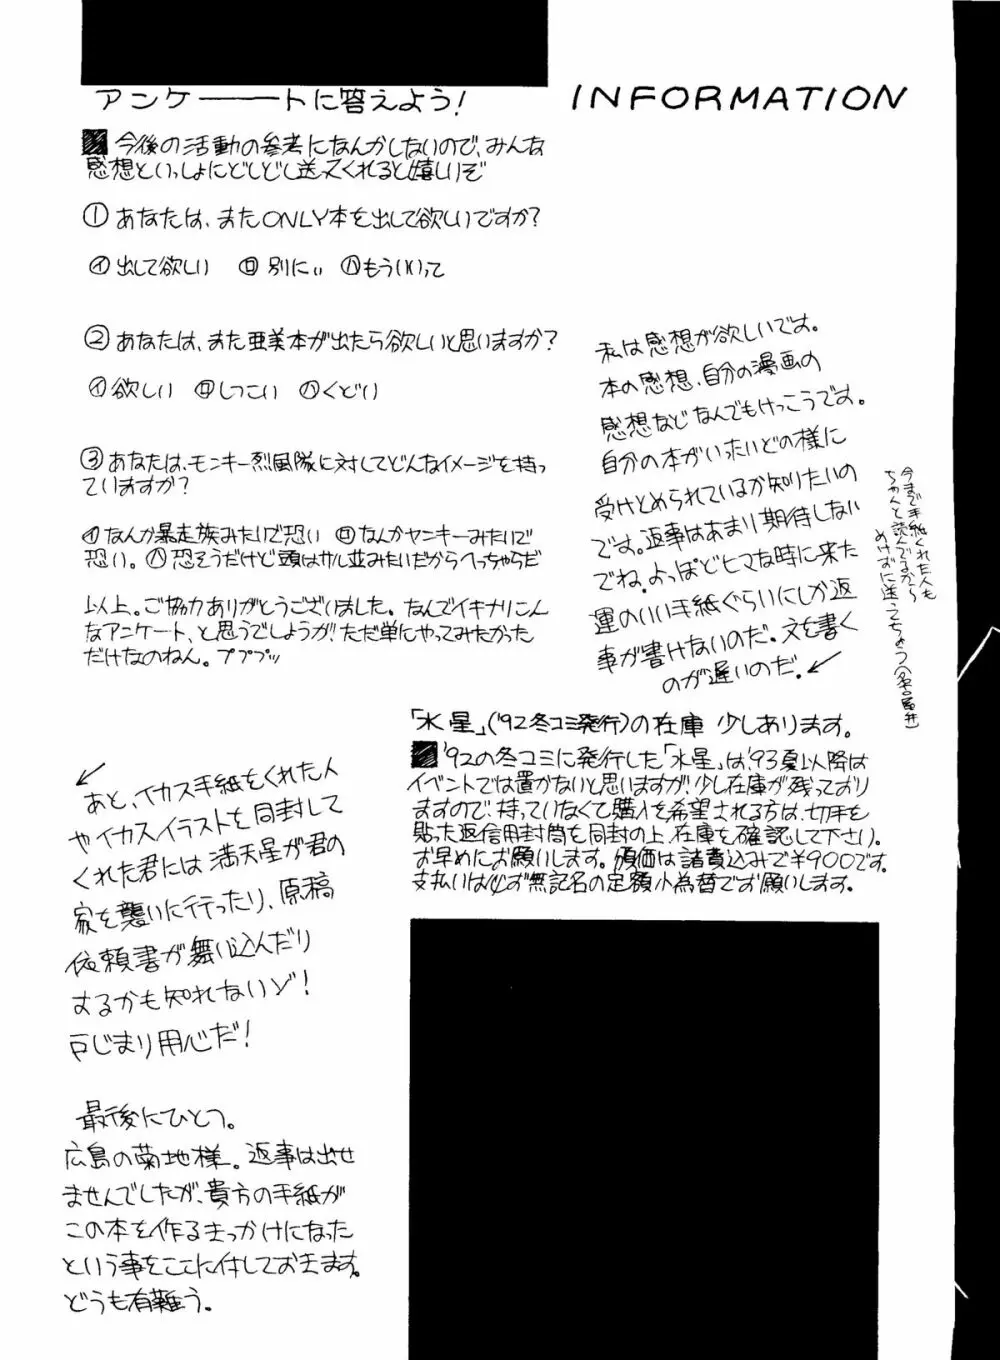 アンケートに答えよう!
INFORMATION
今後の活動の参考になんかしないので、みんな
感想といっしょにどしどし送ってくれると嬉しいぞ
①あなたは、またONLY本を出して欲しいですか?
㋑出して欲しい ㋺別にぃ ㋩もういいって
②あなたは、また亜美本が出たら欲しいと思いますか?
㋑欲しい ㋺しつこい ㋩くどい
③あなたは、モンキー烈風隊に対してどんなイメージを持っ
ていますか?
㋑なんか暴走族みたいで恐い ㋺なんかヤンキーみたいで
恐い。㋩恐そうだけど頭はサル並みたいだからへっちゃらだ
以上。ご協力ありがとうございました。なんでイキナリこん
なアンケート、と思うでしょうが、ただ単にやってみたかった
だけなのねん。プププッ
私は感想が欲しいです。
本の感想、自分の漫画の
感想などなんでもけっこうです。
自分の本がいったいどの様に
受けとめられているか知りたいの
です。返事はあまり期待しない
でね。よっぽどヒマな時に来た
運のいい手紙ぐらいにしか返
事が書けないのだ。文を書く
のが遅いのだ。
今まで手紙くれた人も
ちゃんと読んでるから
めげずに送ってちょう(名古屋弁)
「水星」('92冬コミ発行)の在庫 少しあります。
'92の冬コミに発行した「水星」は、'93夏以降は
イベントでは置かないと思いますが、少し在庫が残っており
ますので、持っていなくて購入を希望される方は、切手を
貼った返信用封筒を同封の上、在庫を確認して下さい。
お早めにお願いします。頒価は諸費込みで¥900です。
支払いは必ず無記名の定額小為替でお願いします。
あと、イカス手紙をくれた人
やイカスイラストを同封して
くれた君には満天星が君の
家を襲いに行ったり、原稿
依頼書が舞い込んだり
するかも知れないゾ!
戸じまり用心だ!
最後にひとつ。
広島の菊地様。返事は出せ
ませんでしたが、貴方の手紙が
この本を作るきっかけになった
という事をここに付しておきます。
どうも有難う。